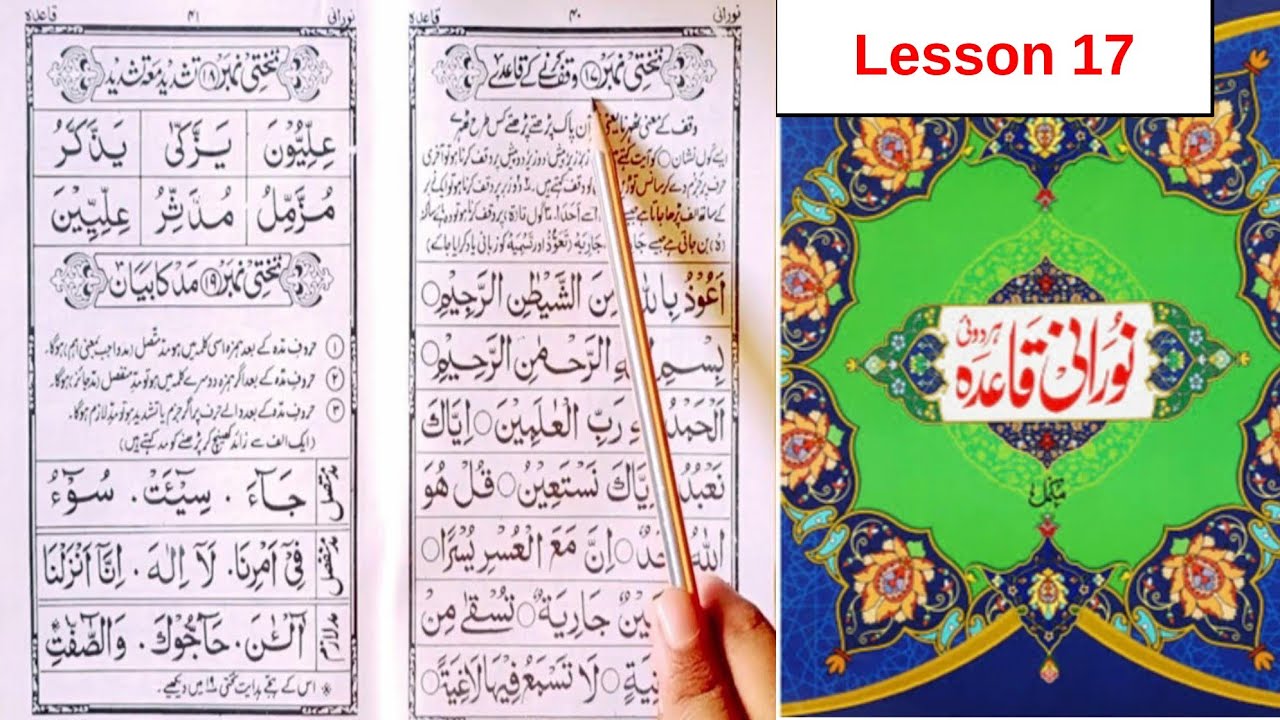 نورانی ۴۰ قاعدہ
تختی نمبر ۱۷ وقف کرنے کے قاعدے
وقف کے معنی ٹھہرنا یعنی پاک پڑھتے پڑھتے کس طرح ٹھہرے
ایسے گول نشان ○ کو آیت کہتے زبر زیر پیش، دو زیر دو پیش پر وقف کرنا ہو تو آخری
حرف پر جزم دے کر سانس توڑ کو وقف کہتے ہیں۔ دو زبر پر وقف کرنا ہو تو ایک زبر
کے ساتھ الف پڑھا جاتا ہے جیسے سے اَحَدًا۔ گول تا (ۃ) پر وقف کرنا ہو تو وہ ہائے ساکنہ
(ہْ) بن جاتی ہے جیسے جَارِیَهْ (تعوّذ اور تسمیہ کو زبانی یاد کرایا جائے)
اَعُوْذُ بِاللّٰهِ مِنَ الشَّيْطٰنِ الرَّجِيْمِ○
بِسْمِ الرَّحْمٰنِ الرَّحِيْمِ○
اَلْحَمْدُ رَبِّ الْعٰلَمِيْنَ○ اِيَّاكَ
نَعْبُدُ اِيَّاكَ نَسْتَعِيْنُ○ قُلْ هُوَ
اللّٰهُ اَحَدٌ○ اِنَّ مَعَ الْعُسْرِ يُسْرًا○
جَارِيَةٌ○ تُسْقٰى مِنْ
اٰنِيَةٍ○ لَا تَسْمَعُ فِيْهَا لَاغِيَةً○
نورانی ۴۱ قاعدہ
تختی نمبر ۱۸ تشدید مع تشدید
عِلِّيُّوْنَ يَزَّكّٰى يَذَّكَّرُ
مُزَّمِّلُ مُدَّثِّرُ عِلِّيِّيْنَ
تختی نمبر ۱۹ مد کا بیان
۱ حروفِ مدّہ کے بعد ہمزہ اسی کلمہ میں ہو مدِّ متصل (مد واجب یعنی اہم) ہوگا۔
۲ حروفِ مدّہ کے بعد اگر ہمزہ دوسرے کلمہ میں ہو تو مدِّ منفصل (مد جائز) ہوگا۔
۳ حروفِ مدّہ کے بعد والے حرف پر اگر جزم یا تشدید ہو تو مدِّ لازم ہوگا۔
(ایک الف سے زائد کھینچ کر پڑھنے کو مد کہتے ہیں)
مد متصل جَآءَ ۔ سِيْٓئَتْ ۔ سُوْٓءُ
مد منفصل فِيْٓ اَمْرِنَا ۔ لَآ اِلٰهَ ۔ اِنَّآ اَنْزَلْنَا
مد لازم آٰلْـٰٔنَ ۔ حَآجُّوْكَ ۔ وَالصّٰٓفّٰتِ*
* اس کے ہجے ہدایت تختی ۱۹ میں دیکھیے۔
Lesson 17
ہردوئی
نورانی قاعدہ
مکمل